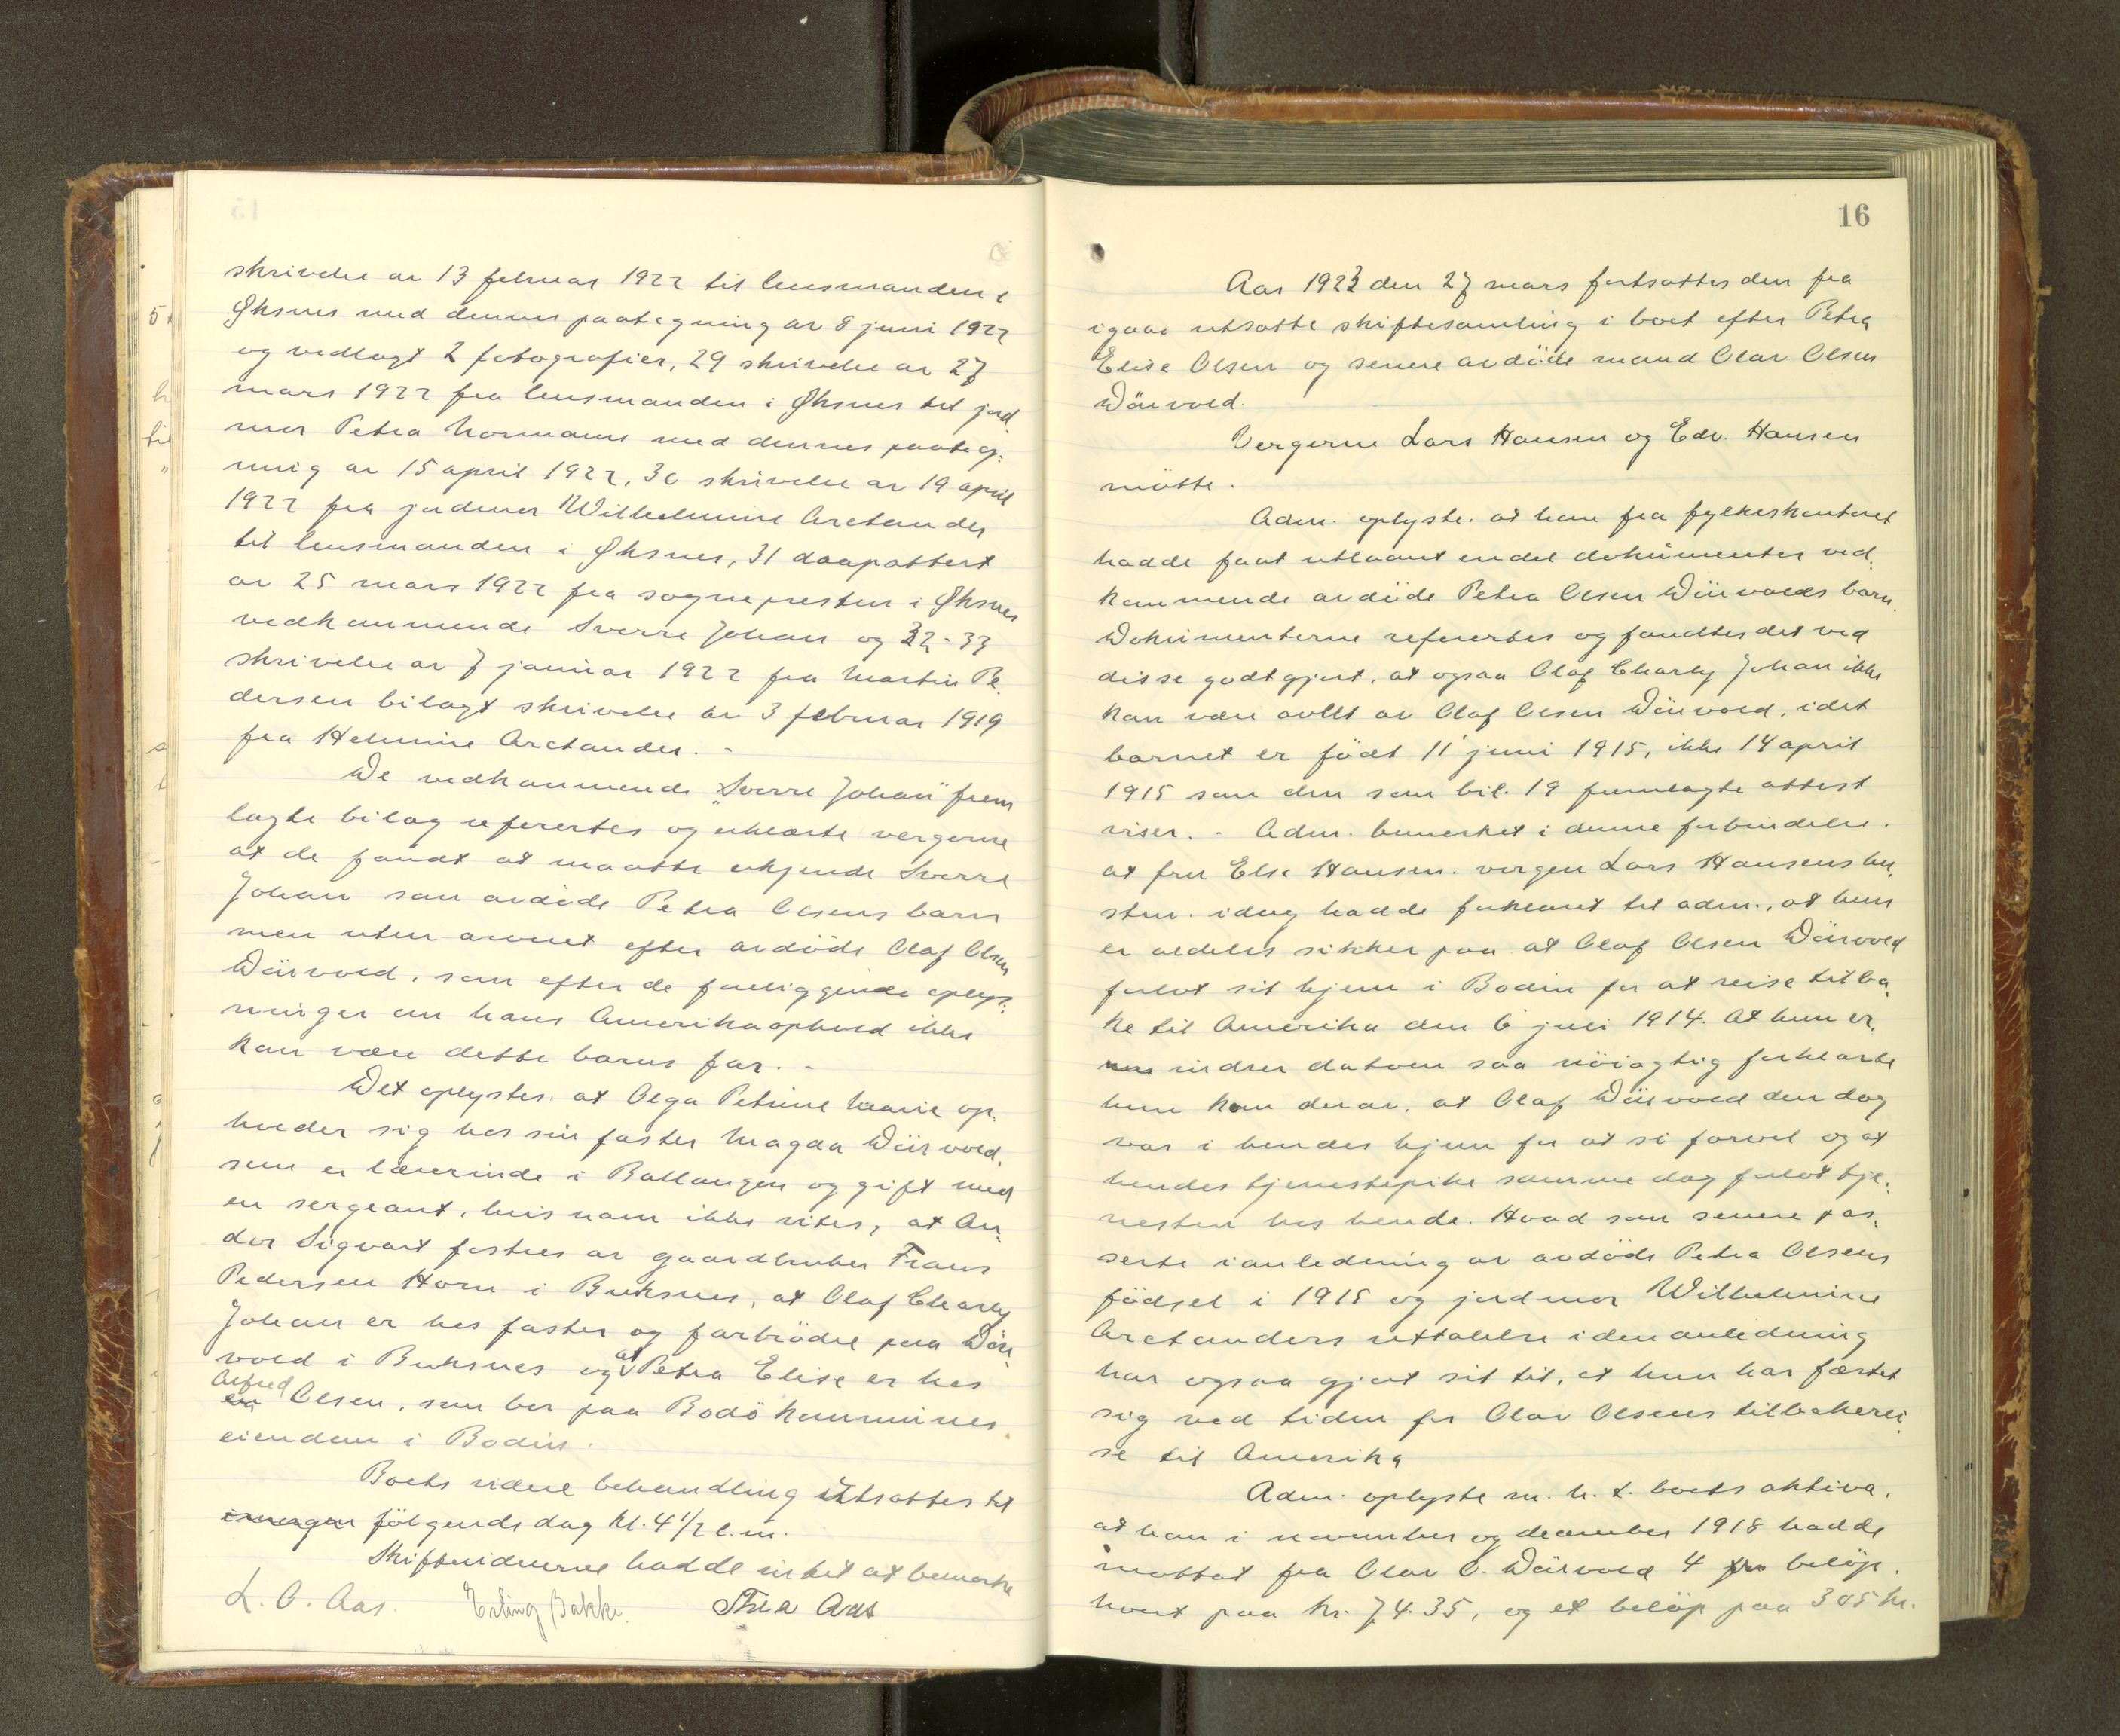 skrivelse av 13 februar 1922 til lensmanden i
Øksnes med dennes paategning av 8 juni 1922
og vedlagt 2 fotografier, 29 skrivelse av 27
mars 1922 fra lensmanden i Øksnes til jord
mor Petra Normann med dennes paateg:
ning av 15 april 1922, 30 skrivelse av 19 april
1922 fra jordmor Wilhelmine Arctander
til lensmanden i Øksnes, 31 daapattest
av 25 mars 1922 fra sognepresten i Øksnes
vedkommende Sverre Johan og 32-33
skrivelse av 7 januar 1922 fra Martin Pe
dersen bilagt skrivelse av 3 februar 1919
fra Helmine Arctander. -
De vedkommende "Sverre Johan" frem
lagte bilag refertes og erklærte vergerne
at de fandt at maatte erkjende Sverre
Johan som avdøde Petra Olsens barn
men uten arveret efter avdöde Olaf Olsen
Däivold, som efter de foreliggende oplys:
ninger om hans Amerikaophold ikke
kan være dette barns far. -
Det oplystes, at Olga Petrine Marie op:
holder sig hos sin faster Magda Däivold,
som er lærerinde i Ballangen og gift med
en sergeant, hvis navn ikke vites, at An:
dor Sigvart fostres av gaardbruker Frans
Pedersen Horn i Buksnes, at Olaf Charly
Johan er hos faster og farbrödre paa Däi:
vold i Buksnes og at Petra Elise er hos
Alfred
en Olsen, som bor paa Bodö kommunes
eiendom i Bodin.
Boets videre behandling utsattes til
imorgen fölgende dag kl. 4 1/2 e.m.
Skiftevidnerne hadde intet at bemerke
L. O. Aas. Erling Bakke. Thea Aas
16
Aar 1923 den 27 mars fortsattes den fra
igaar utsatte skiftesamling i boet efter Petra
Elise Olsen og senere avdöde mand Olav Olsen
Däivold.
Vergerne Lars Hansen og Edv. Hansen
mötte.
Adm. oplyste, at han fra fylkeskontoret
hadde faat utlaant endel dokumenter ved:
kommende avdöde Petra Olsen Däivolds barn.
Dokumenterne referertes og fandtes det ved
disse godtgjort, at ogsaa Olaf Charly Johan ikke
kan være avlet av Olaf Olsen Däivold, idet
barnet er födt 11 juni 1915, ikke 14 april
1915 som den som bil. 19 fremlagte attest
viser. - Adm. bemerket i denne forbindelse,
at fru Else Hansen, vergen Lars Hansens hu:
stru, idag hadde forklaret til adm., at hun
er aldeles sikker paa at Olaf Olsen Däivold
forlot sit hjem i Bodin for at reise tilba:
ke til Amerika den 6 juli 1914. At hun er:
indrer datoen saa nöiagtig forklarte
hun kom derav, at Olaf Däivold den dag
var i hendes hjem for at si farvel og at
hendes tjenestepike samme dag forlot tje:
nesten hos hende. Hvad som senere pas:
serte i anledning av avdöde Petra Olsens
födsel i 1915 og jordmor Wilhelmine
Arctanders uttalelse i den anledning
har ogsaa gjort sit til, at hun har fæstet
sig ved tiden for Olav Olsens tilbakerei:
se til Amerika
Adm. oplyste m. h. t. boets aktiva,
at han i november og december 1918 hadde
mottat fra Olav O. Däivold 4 beløp,
hvert paa kr. 74.35, og et beløp paa 305 kr.